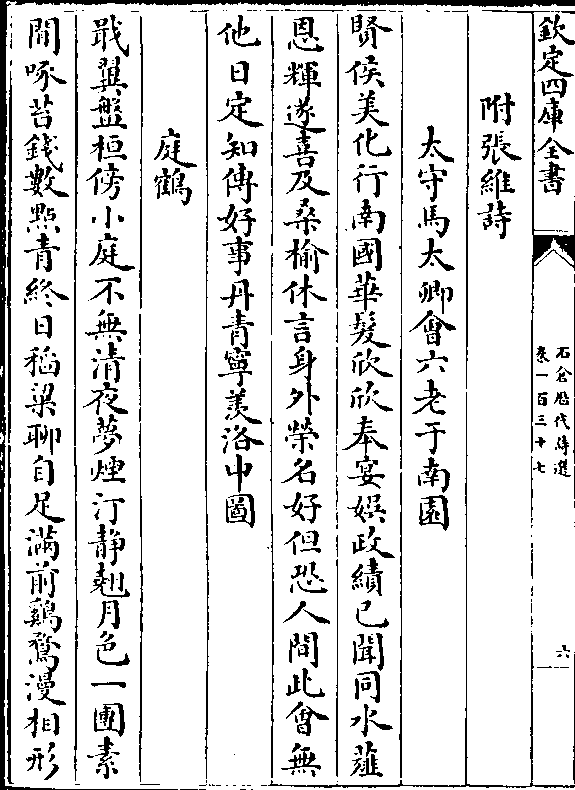 欽定四庫全書
石倉歷代詩選
卷一百三十七
六
附張維詩
太守馬太卿會六老于南園
賢侯美化行南國華髮欣欣奉宴娯政績已聞同水薤
恩輝遂喜及桑榆休言身外榮名好但恐人間此會無
他日定知傳好事丹青寧羨洛中圖
庭鶴
戢翼盤桓傍小庭不無清夜夢煙汀靜翹月色一團素
閒啄苔錢數點青終日稻粱聊自足滿前鷄鶩漫相形